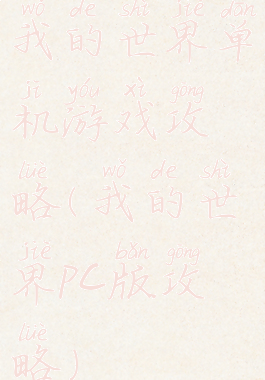 wǒ de shì jiè dān
我的世界单
jī yóu xì gōng
机游戏攻
lüè wǒ de shì
略(我的世
jiè bǎn gōng
界PC版攻
lüè
略)